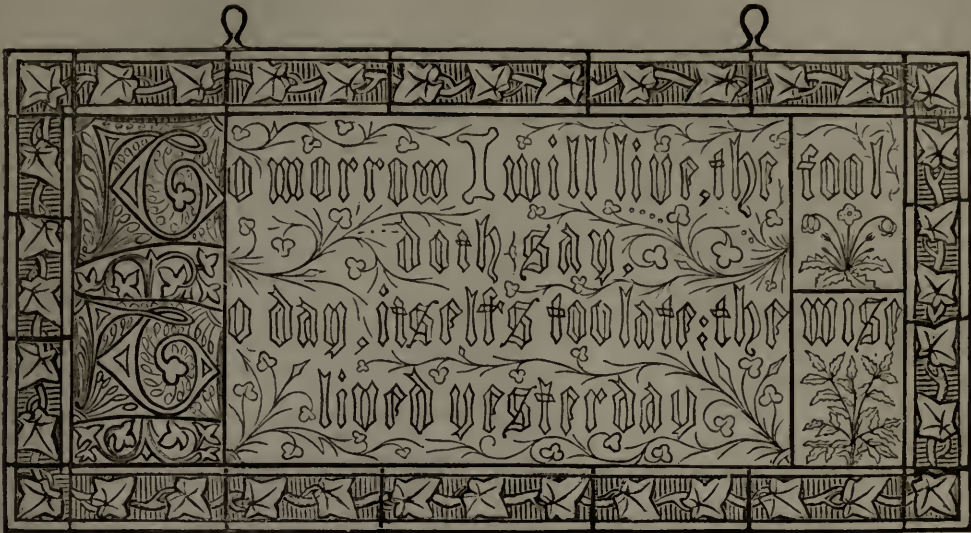 To morrow I will live, the fool
doth say,
To day, itself's too late: the wise
lived yesterday